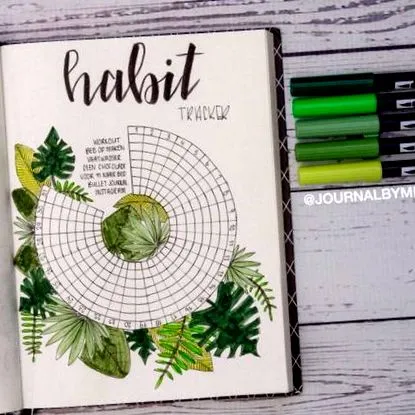 habit
TRACKER
WORKOUT
BED OPMAKEN
VAATWASSER
GEEN CHOCOLADE
VOOR 11 NAAR BED
BULLET JOURNAL
INSTAGRAM
@JOURNALBYM